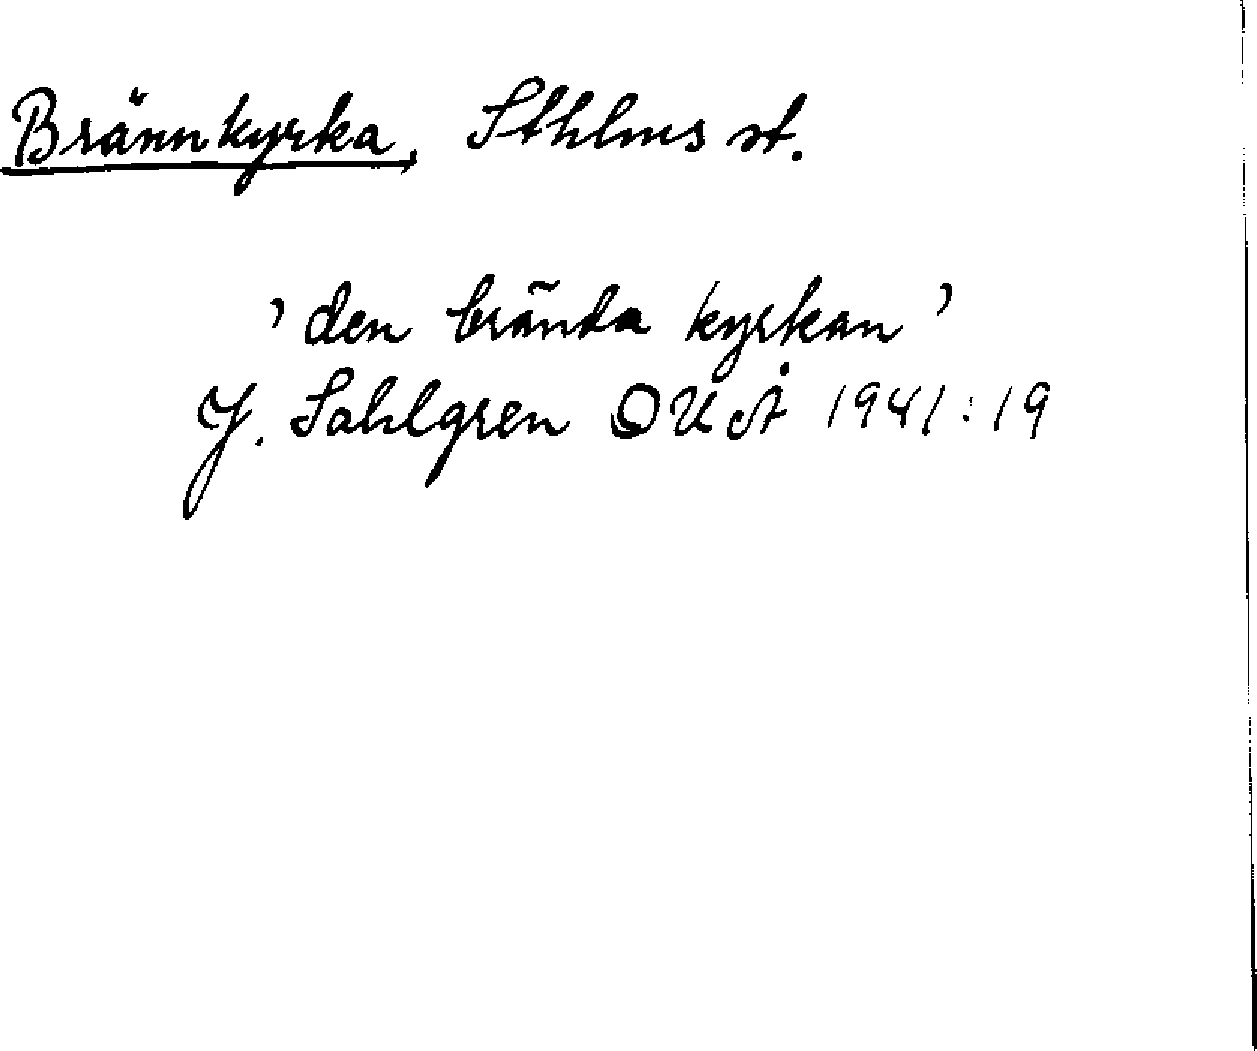 Brännkyrka, Sthlms st.
'den brända kyrkan'
J. Sahlgren OUÅ 1941:19